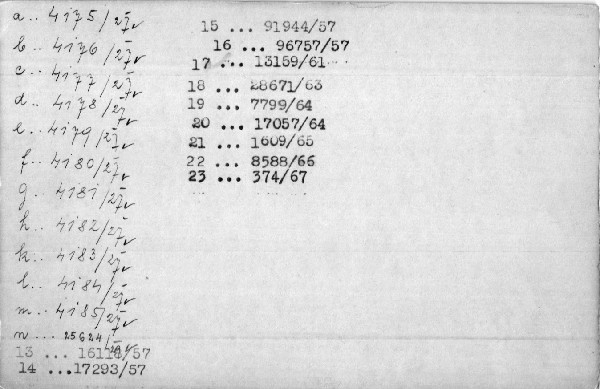 a.. 4175/27
b.. 4176/27
c.. 4177/27
d.. 4178/27
e.. 4179/27
f... 4180/27
g... 4181/27
h... 4182/27
k... 4183/27
l... 4184/27
m... 4185/27
n... 25624/
13 ... 16118/57
14 ...17293/57
15 ... 91944/57
16 ... 96757/57
17 ... 13159/61
18 ... 28671/63
19 ... 7799/64
20 ... 17057/64
21 ... 1609/65
22 ... 8588/66
23 ... 374/67